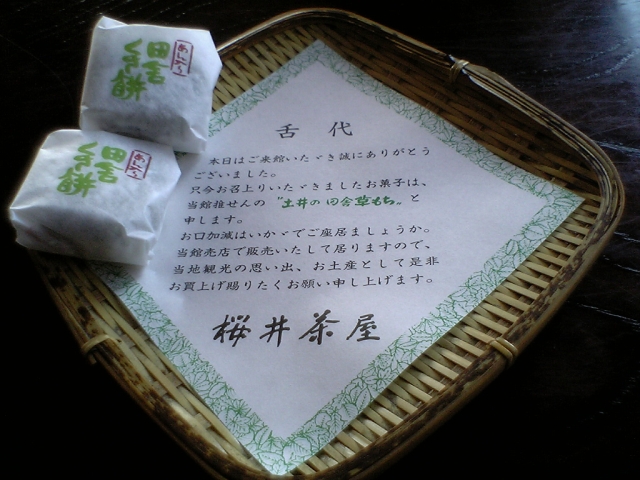 田舎
くさ餅
田舎
くさ餅
舌代
本日はご来館いたゞき誠にありがとう
ございました。
只今お召上りいたゞきましたお菓子は、
当館推せんの〝土井の田舎草もち〟と
申します。
お口加減はいかゞでご座居ましょうか。
当館売店で販売いたして居りますので、
当地観光の思い出、お土産として是非
お買上げ賜りたくお願い申し上げます。
桜井茶屋